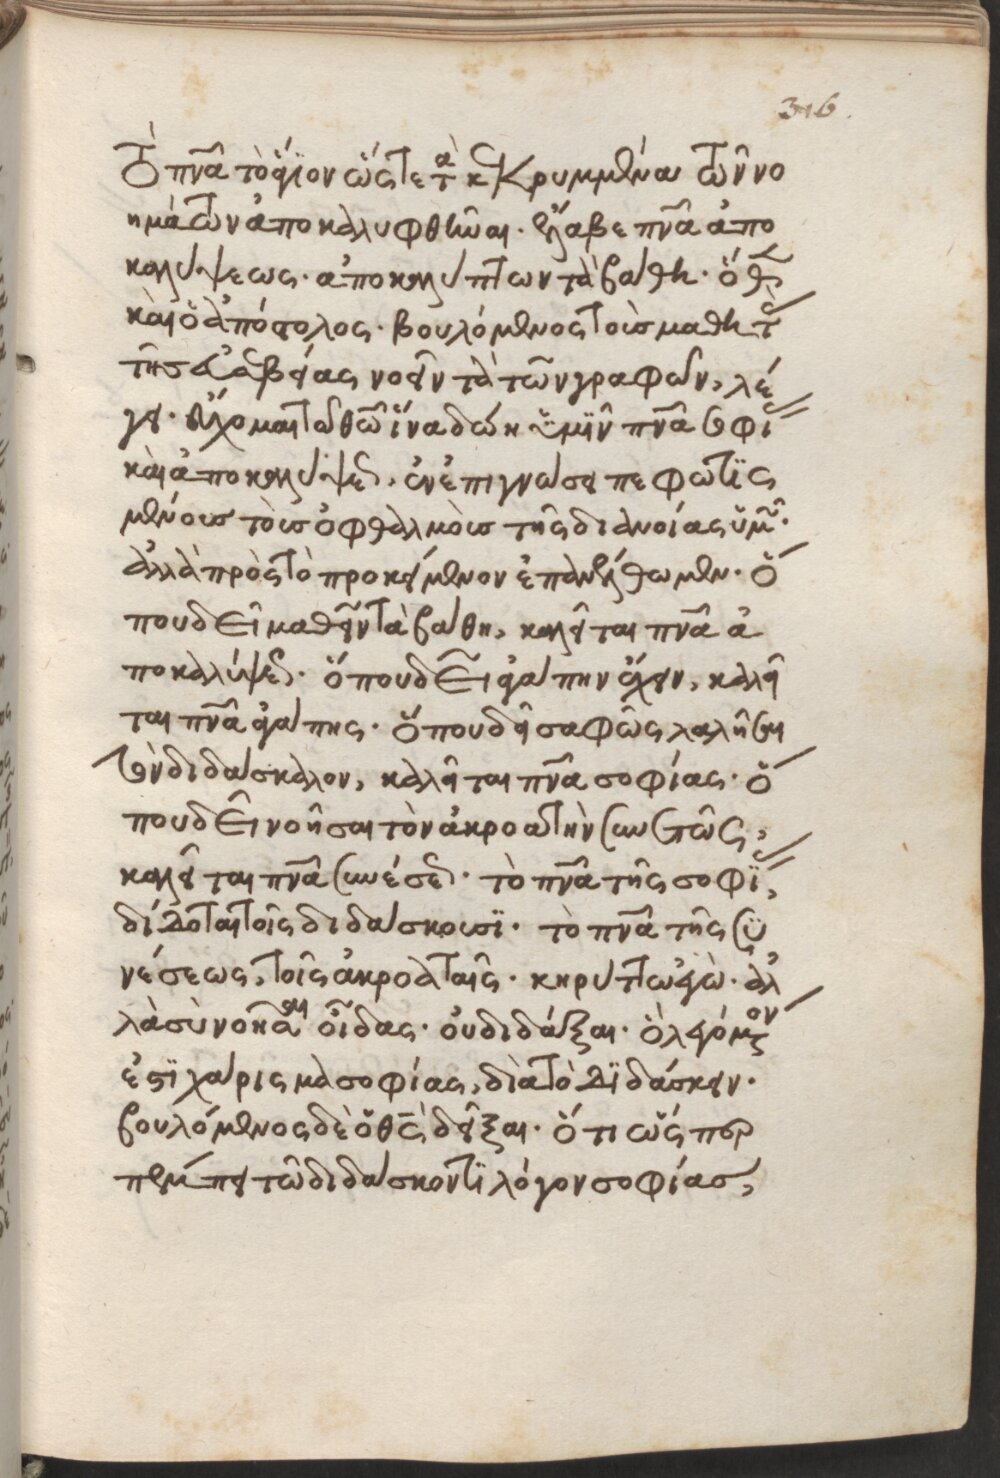 316.
τὸ πνᾶ τὸ ἅγϊον ὥςτε τὰ κεκρυμμένα τῶν νο
ημάτων ἀποκαλυφθῆναι· ἔλαβε πνᾶ ἀπο
καλύψεως· ἀποκαλύπτων τὰ βάθη· ὅθεν
καὶ ὁ ἀπόστολος· βουλόμενος τοὺς μαθητὰς
τῆς εὐσεβείας νοεῖν τὰ τῶν γραφῶν, λέ
γει· εὔχομαι τῶ θεῶ ἵνα δώη ὑμῖν πνᾶ σοφίας
καὶ ἀποκαλύψεως, ἐν ἐπιγνώσει πεφωτϊς
μένους τοὺς ὀφθαλμοὺς τῆς διανοίας ὑμῶν·
ἀλλὰ πρὸς τὸ προκείμενον ἐπανέλθωμεν· ὅ
που δεῖ μαθεῖν τὰ βάθη, καλεῖται πνᾶ ἀ
ποκαλύψεως· ὅπου δεῖ ἀγάπην ἔχειν, καλεῖ
ται πνᾶ ἀγάπης· ὅπου δεῖ σαφῶς λαλῆσαι
τὸν διδάσκαλον, καλεῖται πνᾶ σοφίας· ὅ
που δεῖ νοῆσαι τὸν ἀκροατὴν συνετῶς,
καλεῖται πνᾶ συνέσεως· τὸ πνᾶ τῆς σοφίας,
δίδοται τοῖς διδάσκουσϊ· τὸ πνᾶ τῆς συ
νέσεως, τοῖς ἀκροαταῖς· κηρύττω ἐγὼ· ἀλ
λὰ σὺ νοῆσαι οἶδας· οὐ διδάξαι· ὁ λεγόμενον
ἐστϊ χάρισμα σοφίας, διὰ τὸ διδάσκειν·
βουλόμενος δὲ ὁ θς δεῖξαι· ὅτι ὥςπερ
πέμπει τῶ διδάσκοντϊ λόγον σοφίας,